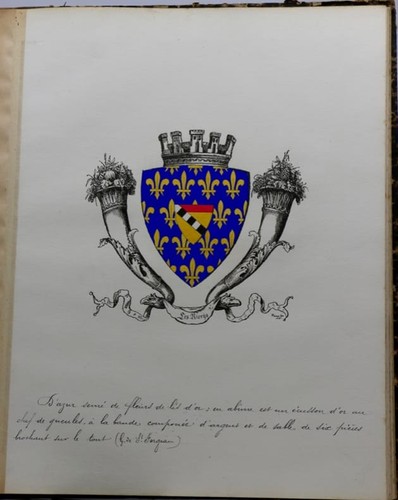 Les Riceys
D'azur semé de fleurs de lis d'or; en abime est un écusson d'or au
chef de gueules, à la bande componée d'argent et de sable de six pièces
brochant sur le tout (G. de St Fergeau)